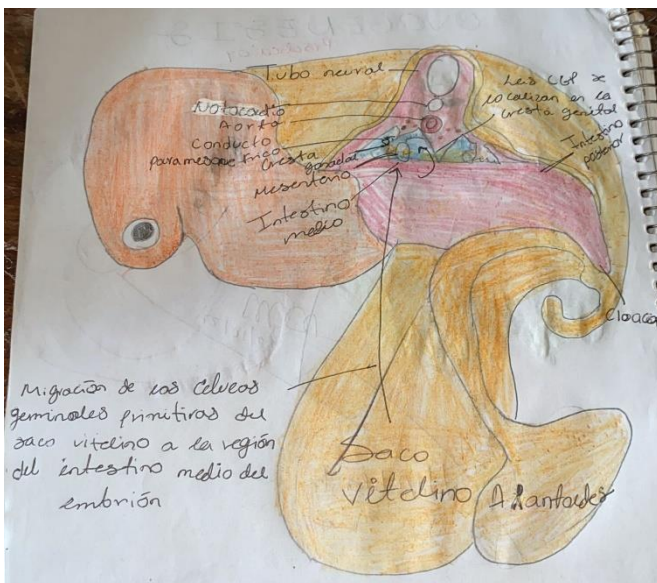 Tubo neural
Notocordio
Aorta
Conducto
paramesonefrico
Cresta
gonadal
Mesenterio
Intestino
medio
Las CGP se
localizan en la
cresta genital
Intestino
posterior
Cloaca
Migración de las Celulas
germinales primitivas del
saco vitelino a la región
del intestino medio del
embrión
Saco
vitelino
Alantoides